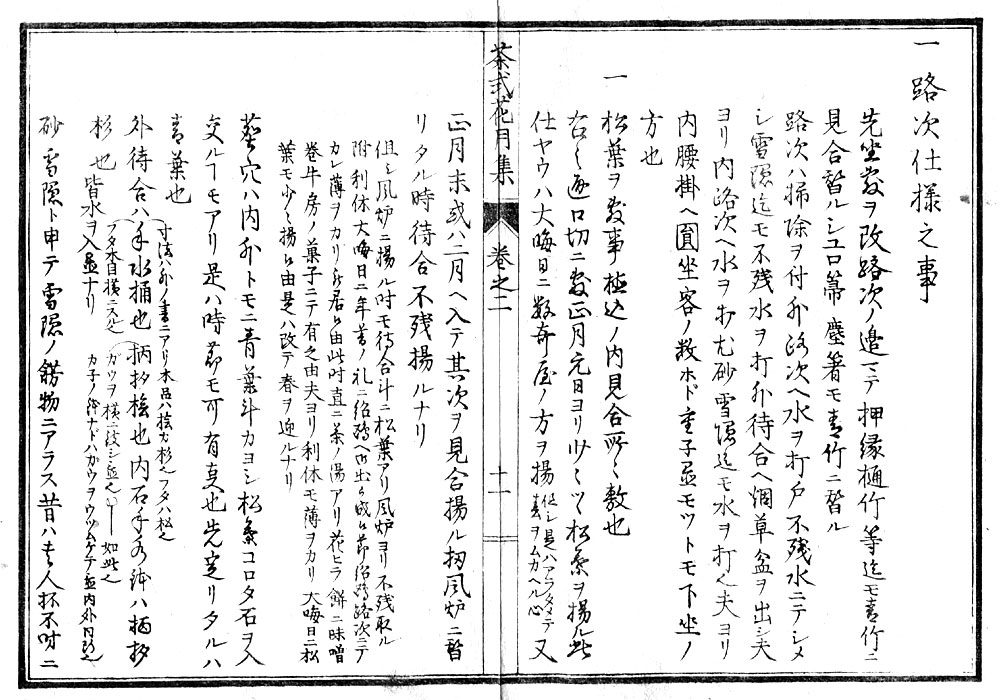 一 路次仕様之事
先坐敷ヲ改路次ノ邉マテ押縁樋竹等迄モ青竹ニ
見合替ルシユロ箒塵箸モ青竹ニ替ル
路次ハ掃除ヲ付外路次ヘ水ヲ打戸不残水ニテシメ
シ雪隠迄モ不残水ヲ打外待合ヘ烟草盆ヲ出シ夫
ヨリ内路次ヘ水ヲ打尤砂雪隠迄モ水ヲ打夫ヨリ
内腰掛ヘ圓坐客ノ数ホド重子並モツトモ下坐ノ
方也
一 松葉ヲ敷事極込ノ内見合所々敷也
右之通口切ニ敷正月元日ヨリ少シツヽ松葉ヲ揚ル此
仕ヤウハ大晦日ニ数奇屋ノ方ヲ揚 但シ是ハアラタメテ春ヲムカヘル心 又
茶式花月集 巻之二 十一
正月末或ハ二月ヘ入テ其次ヲ見合揚ル扨風炉ニ替
リタル時待合不残揚ルナリ
但シ風炉ニ揚ル時モ待合斗ニ松葉アリ風炉ヨリ不残取ル
附利休大晦日ニ年暮ノ礼ニ紹鴎ヘ出ラ成シ節紹鴎路次ニテ
カレ薄ヲカリ居由此時直ニ茶ノ湯アリ花ヒラ餅ニ味噌
巻牛房ノ菓子ニテ有之由夫ヨリ利休モ薄ヲカリ大晦日ニ松
葉モ少シ揚由是ハ改テ春ヲ迎ルナリ
塵穴ハ内外トモニ青葉斗カヨシ松葉コロタ石ヲ入
交ルヿモアリ是ハ時節モ可有真也先定リタルハ
青葉也
外待合ハ手水桶也 寸法外ノ書ニアリ木品ハ桧カ杉之フタハ松之フタ杢目横ニスル 柄杓桧也内石手水鉢ハ柄杓
杉也 皆水ヲ入並ナリ
砂雪隠ト申テ雪隠ノ餝物ニアラス昔ハ主人抔不時ニ